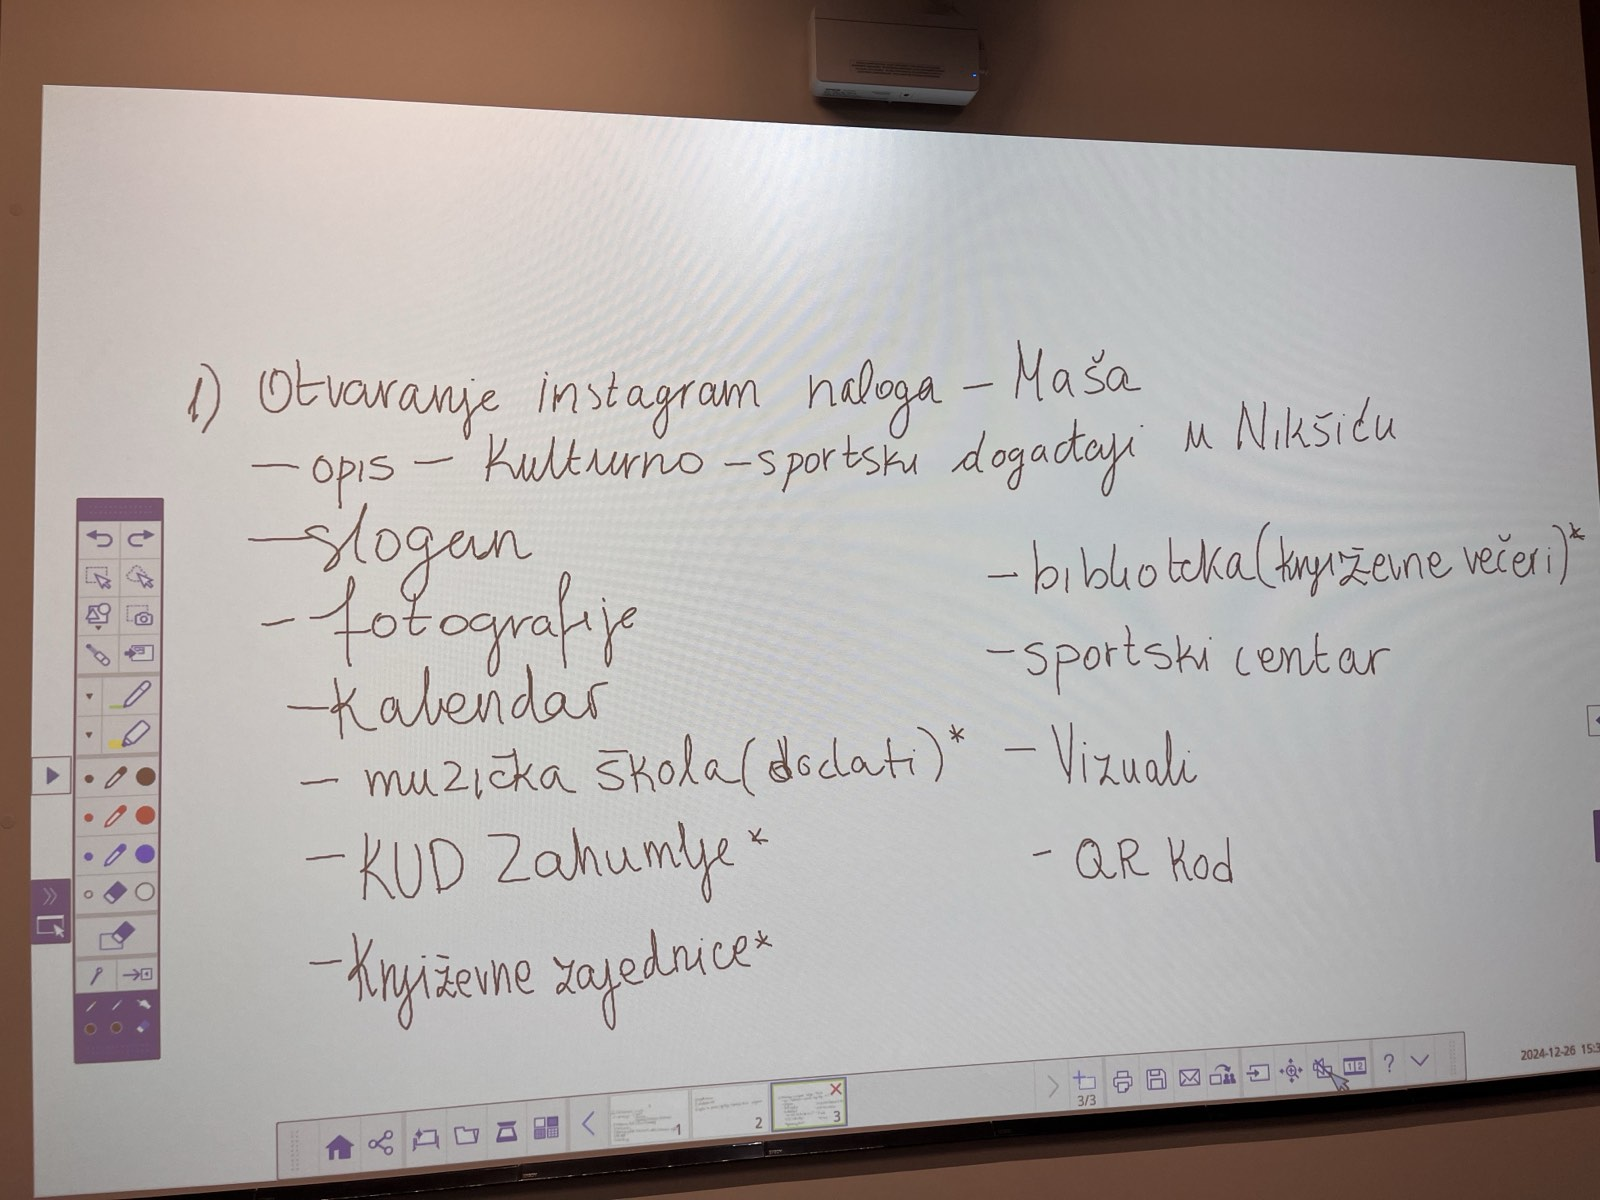 1) Otvaranje instagram naloga – Maša
– opis – Kulturno – sportski događaji u Nikšiću
– slogan
– fotografije
– Kalendar
– muzička škola (dodati)*
– KUD Zahumlje*
– Književne zajednice*
– biblioteka (književne večeri)*
– sportski centar
– Vizuali
– QR Kod
3/3
1
2
3
2024-12-26 15:3